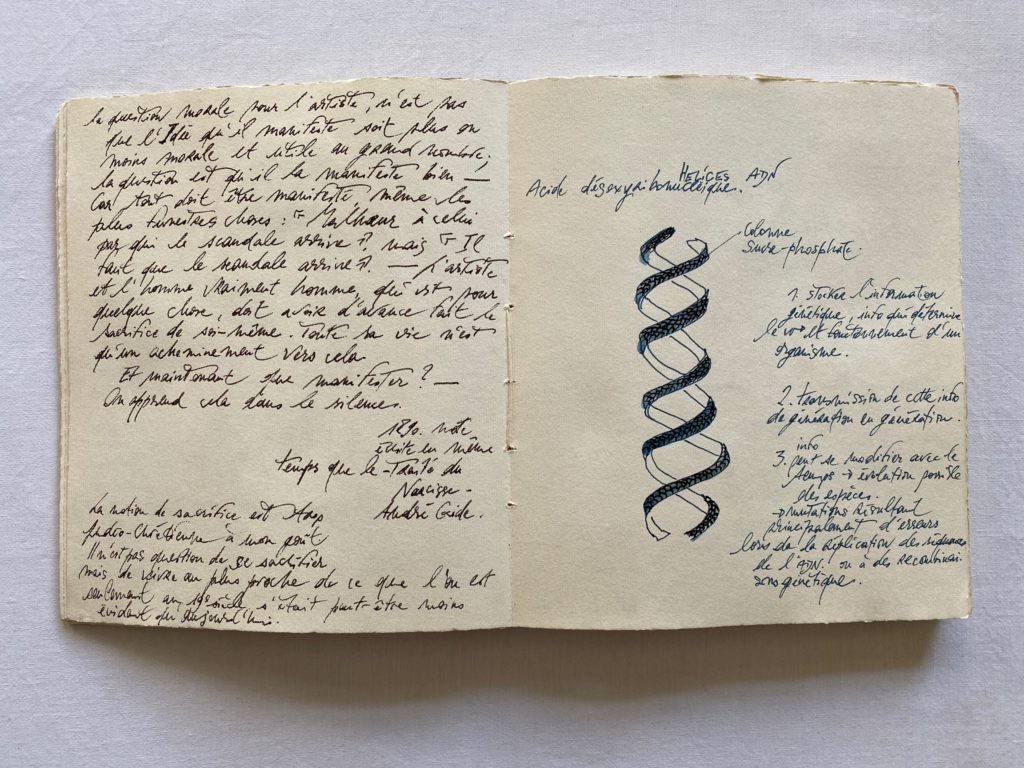 la question morale pour l'artiste, n'est pas
que l'Idée qu'il manifeste soit plus ou
moins morale et utile au grand nombre;
la question est qu'il la manifeste bien —
Car tout doit être manifesté, même les
plus funestes choses : " Malheur à celui
par qui le scandale arrive ", mais " Il
faut que le scandale arrive ". — L'artiste
et l'homme vraiment homme, qui vit pour
quelque chose, doit avoir d'avance fait le
sacrifice de soi-même. Toute sa vie n'est
qu'un acheminement vers cela
Et maintenant que manifester ? —
On apprend cela dans le silence.
1890. note
écrite en même
temps que le Traité du
Narcisse.
André Gide.
La notion de sacrifice est trop
judéo-chrétienne à mon goût
Il n'est pas question de se sacrifier
mais de vivre au plus proche de ce que l'on est
seulement au 19e siècle, c'était peut-être moins
évident qu'aujourd'hui.
HELICES ADN
Acide désoxyribonucléique.
Colonne
Sucre-phosphate.
1. stocker l'information
génétique, info qui détermine
le et fonctionnement d'un
organisme.
2. transmission de cette info
de génération en génération.
info
3. peut se modifier avec le
temps → évolution possible
des espèces.
→ mutations résultant
principalement d'erreurs
lors de la réplication des séquences
de l'ADN. ou à des recombinai-
sons génétique.